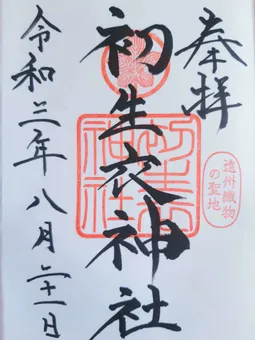 奉拝
初生衣神社
令和三年八月二十一日
初生衣
神社
遠州織物
の聖地